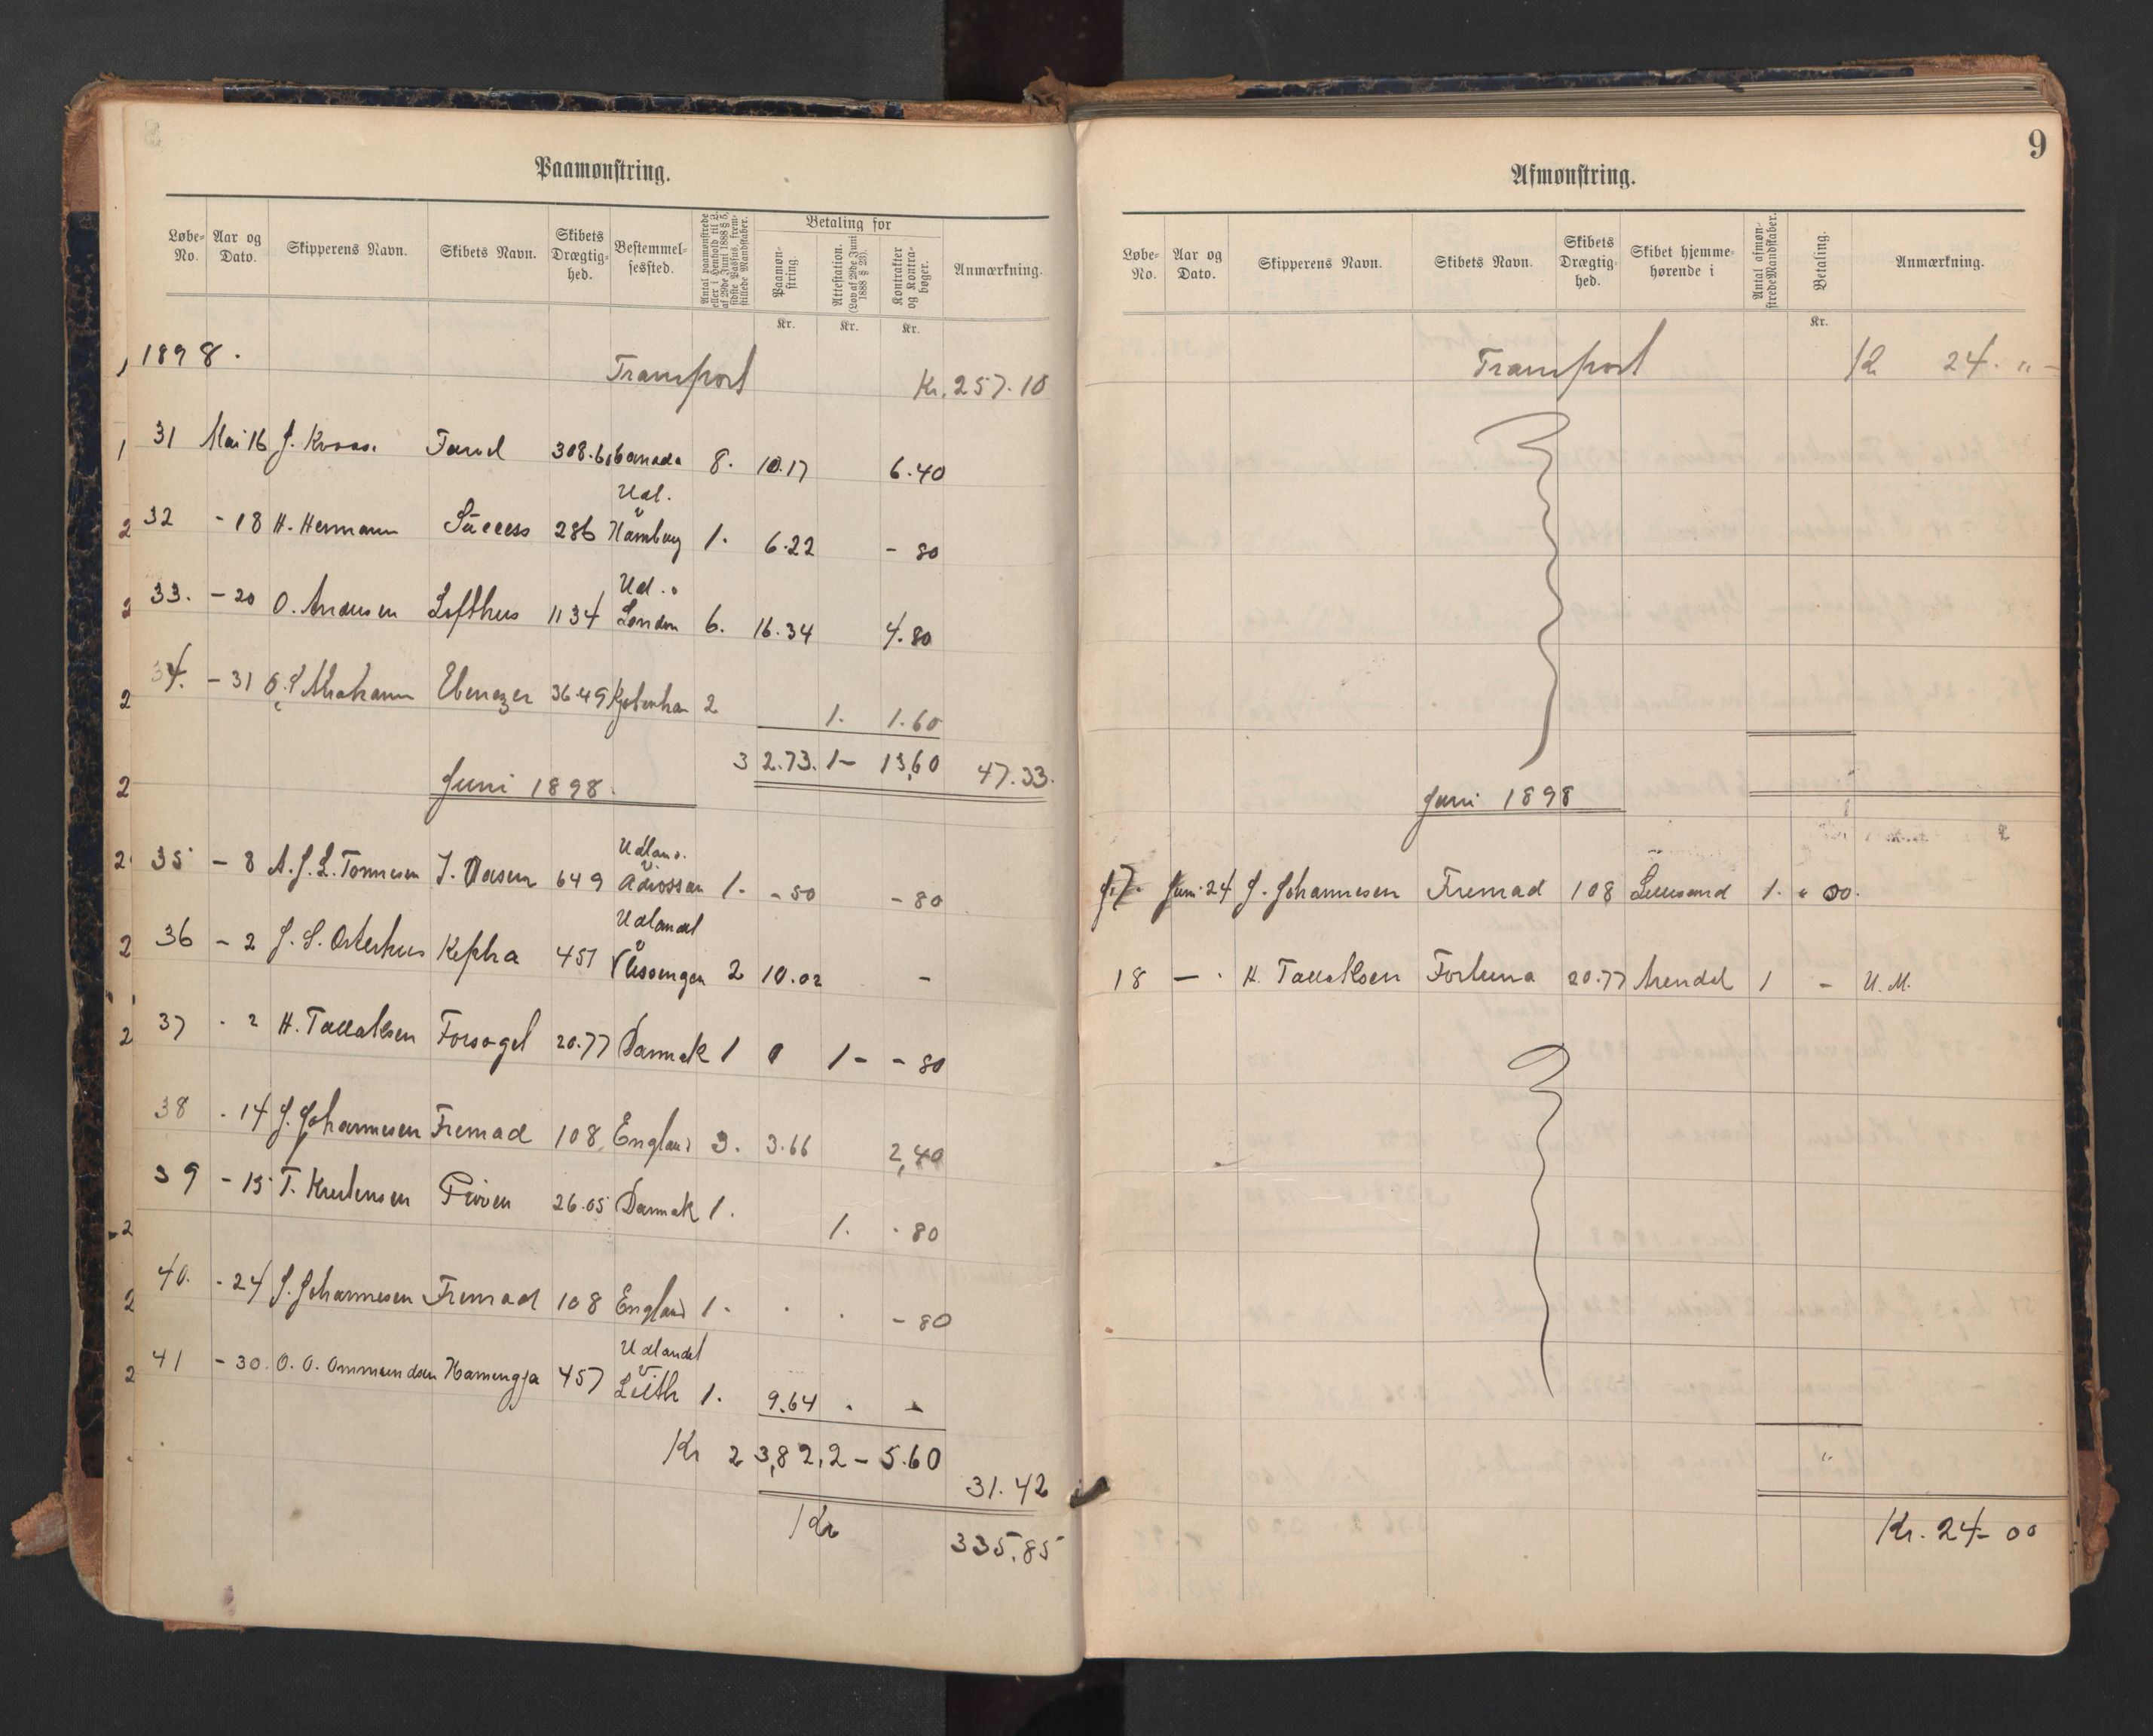 Paamønstring.
Løbe-No. Aar og Dato. Skipperens Navn. Skibets Navn. Skibets Drægtig-hed. Bestemmel-sessted. Antal paamønstrede eller i Henhold til L. af 29de Juni 1888 § 5, sidste Passus, frem-stillede Mandskaber. Betaling for Paamøn-string. Attestation. (Lov af 29de Juni 1888 § 23). Kontrakter og Kontra-bøger. Anmærkning.
Kr. Kr. Kr.
1898. Transport Kr. 257.10
31 Mai 16 J. Familie 308.60 Canada 8. 10.17 6.40
Udl.
32 - 18 H. Hermann Success 286 Hamburg 1. 6.22 - 80
Ud.
33. - 20 O. Andersen Lofthus 1134 London 6. 16.34 4.80
34. - 31 Ebenezer 36.49 2 1. 1.60
32.73. 1- 13,60 47.33.
Juni 1898.
Udlan.
35 - 8 A. J. L. Tonnesen 649 1. - 50 - 80
Udlandet
36 - 2 J. S. Osterhus Kepha 457 Vlissengen 2 10.02 -
37 - 2 H. Tallaksen Forsøget 20.77 Danmak 1 1- - 80
38 - 14 J. Johannesen Fremad 108 England 3. 3.66 2,40
39 - 15 T. 26.05 Danmak 1. 1. - 80
40. - 24 J. Johannesen Fremad 108 England 1. - 80
Udlandet
41 - 30. O. O. Ommundsen 457 Leith 1. 9.64
Kr 23,82,2 - 5.60
31.42
Kr 335.85
9
Afmønstring.
Løbe-No. Aar og Dato. Skipperens Navn. Skibets Navn. Skibets Drægtig-hed. Skibet hjemme-hørende i Antal afmøn-strede Mandskaber. Betaling. Anmærkning.
Kr.
Transport 24. „ -
Juni 1898
17. Juni 24 J. Johannesen Fremad 108 Lillesand 1.
18 - H. Tallaksen Fortuna 20.77 Arendal 1 - U. M.
Kr. 24- 00